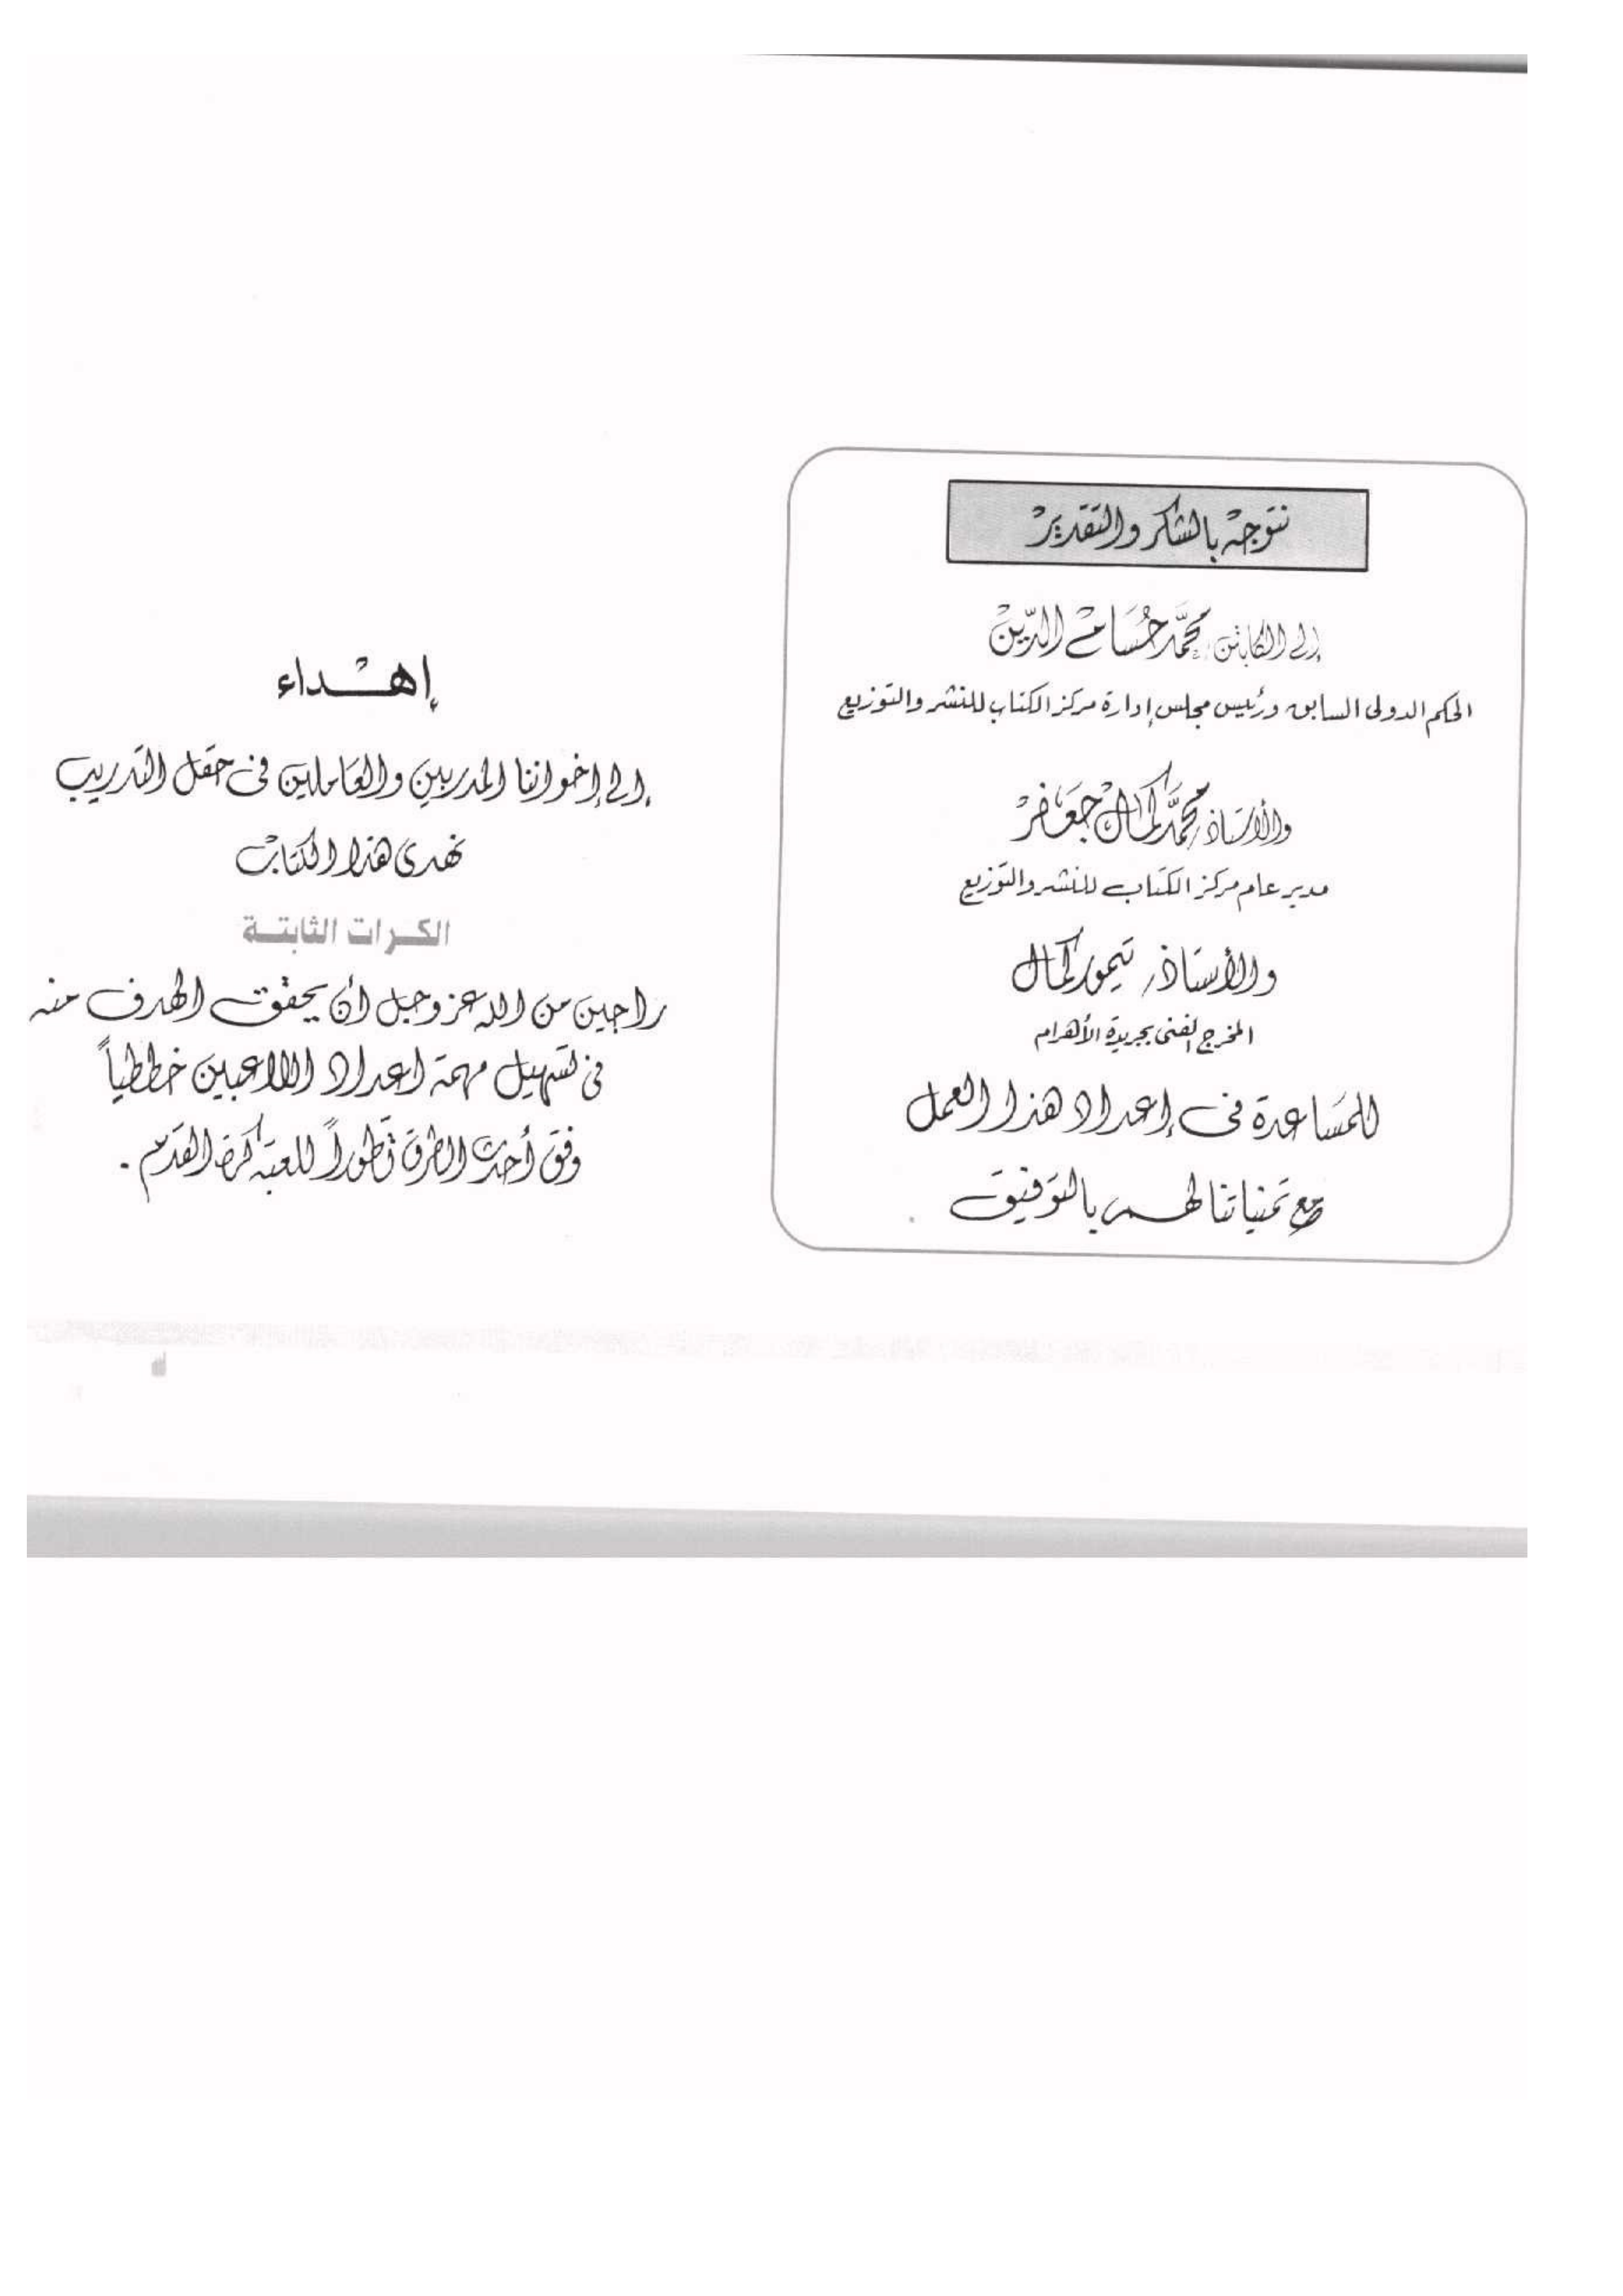 نتوجه بالشكر والتقدير
إلى الكابتن / محمد حسام الدين
الحكم الدولى السابق ورئيس مجلس إدارة مركز الكتاب للنشر والتوزيع
والأستاذ / محمد كمال جعفر
مدير عام مركز الكتاب للنشر والتوزيع
والأستاذ / تيمور كمال
المخرج الفنى بجريدة الأهرام
للمساعدة فى إعداد هذا العمل
مع تمنياتنا لهم بالتوفيق
إهـداء
إلى إخواننا المدربين والعاملين فى حقل التدريب
نهدى هذا الكتاب
الكرات الثابتة
راجين من الله عز وجل أن يحقق الهدف منه
فى تسهيل مهمة إعداد اللاعبين خططياً
وفق أحدث الطرق تطوراً للعبة كرة القدم .